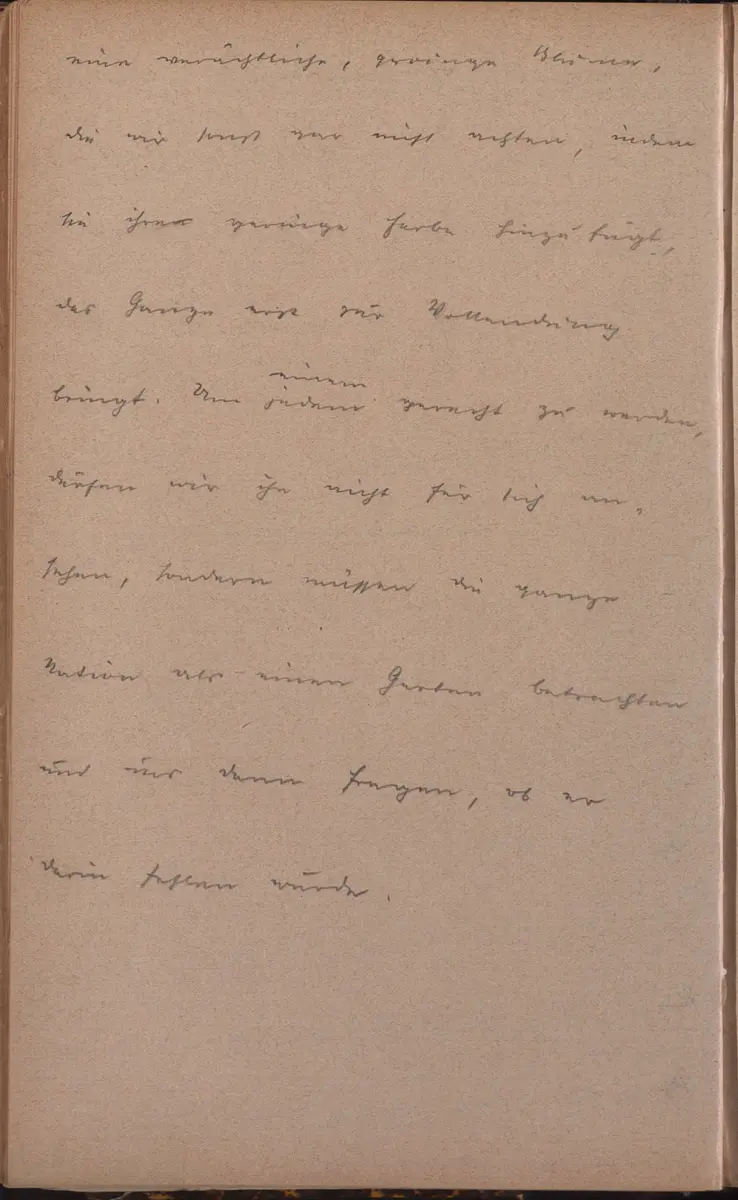 eine verächtliche, geringe Blume,
die wir sonst gar nicht achten, indem
sie ihre geringe Farbe hinzufügt,
das Ganze erst zur Vollendung
bringt. Um
einem
jedem gerecht zu werden,
dürfen wir ihn nicht für sich an-
sehen, sondern müssen die ganze
Nation als einen Garten betrachten
und uns dann fragen, ob er
darin fehlen würde.